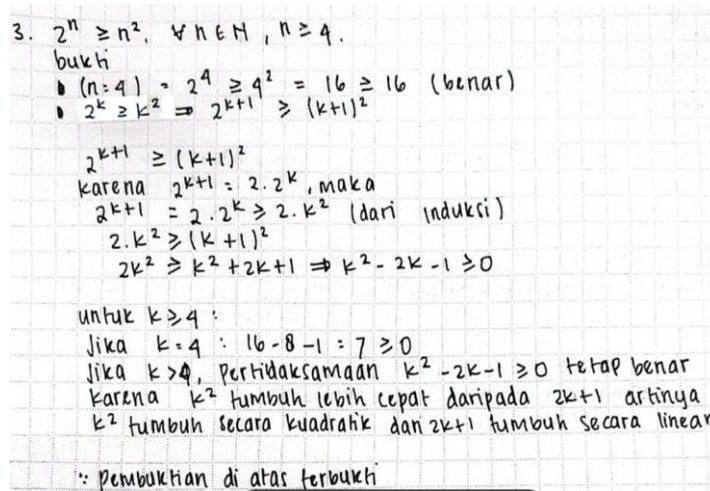 3. 2ⁿ ≥ n², ∀ n ∈ N, n ≥ 4.
bukti
• (n = 4) = 2⁴ ≥ 4² = 16 ≥ 16 (benar)
• 2ᵏ ≥ k² ⇒ 2ᵏ⁺¹ ≥ (k+1)²
2ᵏ⁺¹ ≥ (k+1)²
karena 2ᵏ⁺¹ = 2 . 2ᵏ, maka
2ᵏ⁺¹ = 2 . 2ᵏ ≥ 2 . k² (dari induksi)
2 . k² ≥ (k+1)²
2k² ≥ k² + 2k + 1 ⇒ k² - 2k - 1 ≥ 0
untuk k ≥ 4 :
Jika k = 4 : 16 - 8 - 1 = 7 ≥ 0
Jika k > 4, pertidaksamaan k² - 2k - 1 ≥ 0 tetap benar
karena k² tumbuh lebih cepat daripada 2k+1 artinya
k² tumbuh secara kuadratik dan 2k+1 tumbuh secara linear
∵ pembuktian di atas terbukti